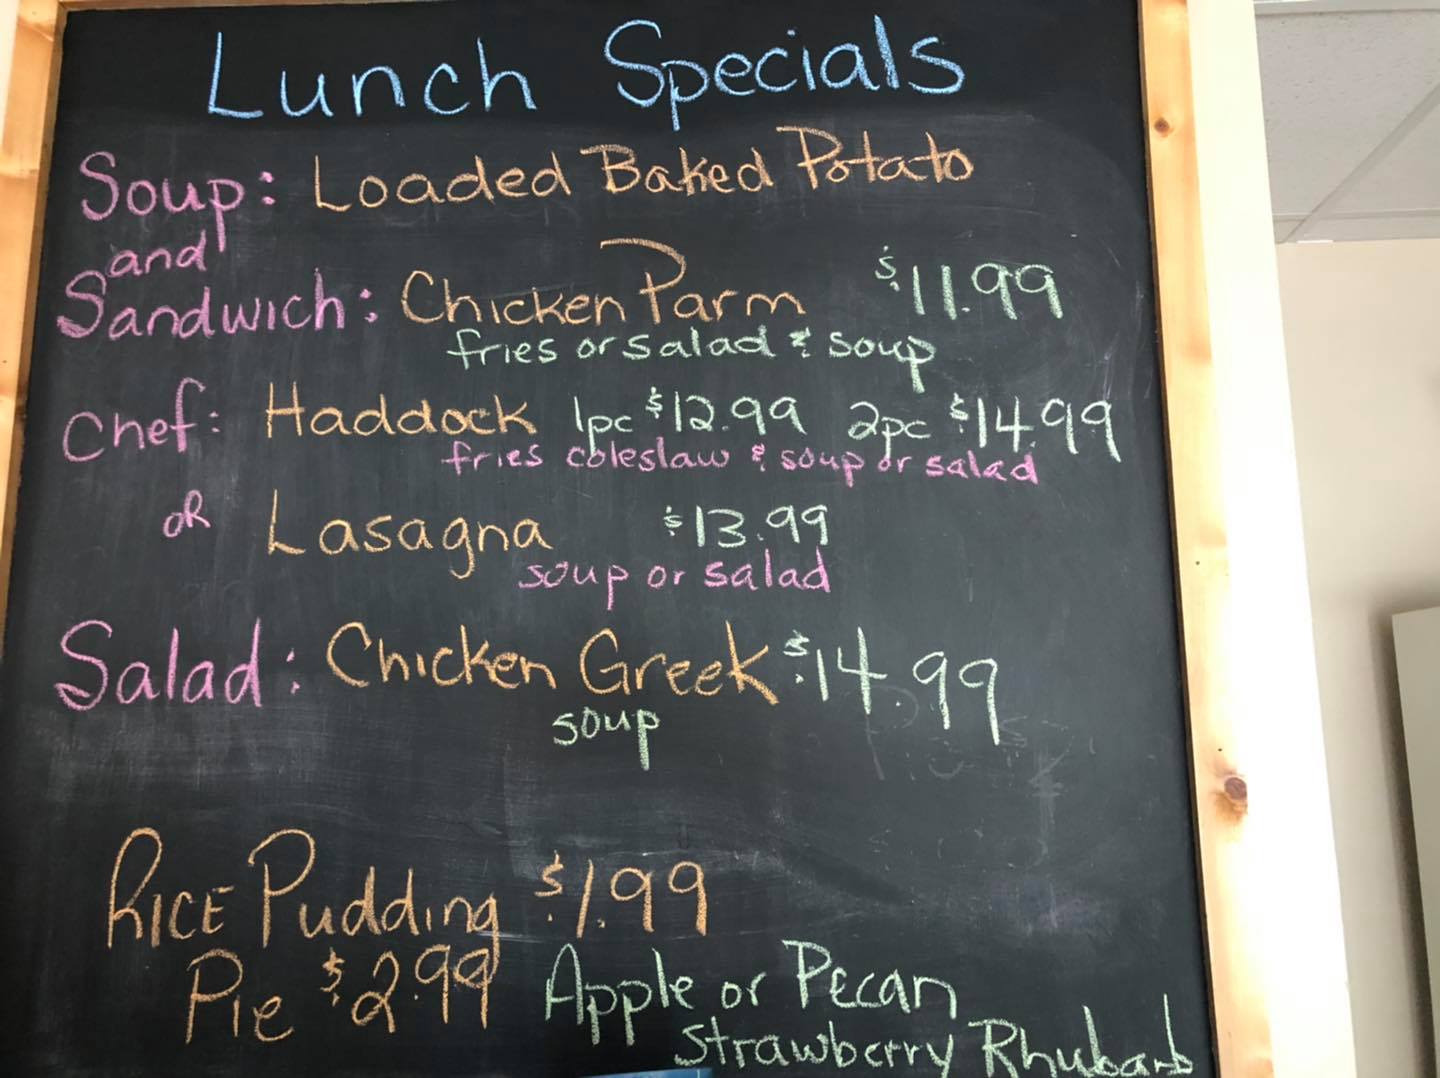 Lunch Specials
Soup: Loaded Baked Potato
and
Sandwich: Chicken Parm $11.99
fries or salad & soup
Chef: Haddock 1pc $12.99 2pc $14.99
fries coleslaw & soup or salad
OR Lasagna $13.99
soup or salad
Salad: Chicken Greek $14.99
soup
RICE Pudding $1.99
Pie $2.99 Apple or Pecan
Strawberry Rhubarb